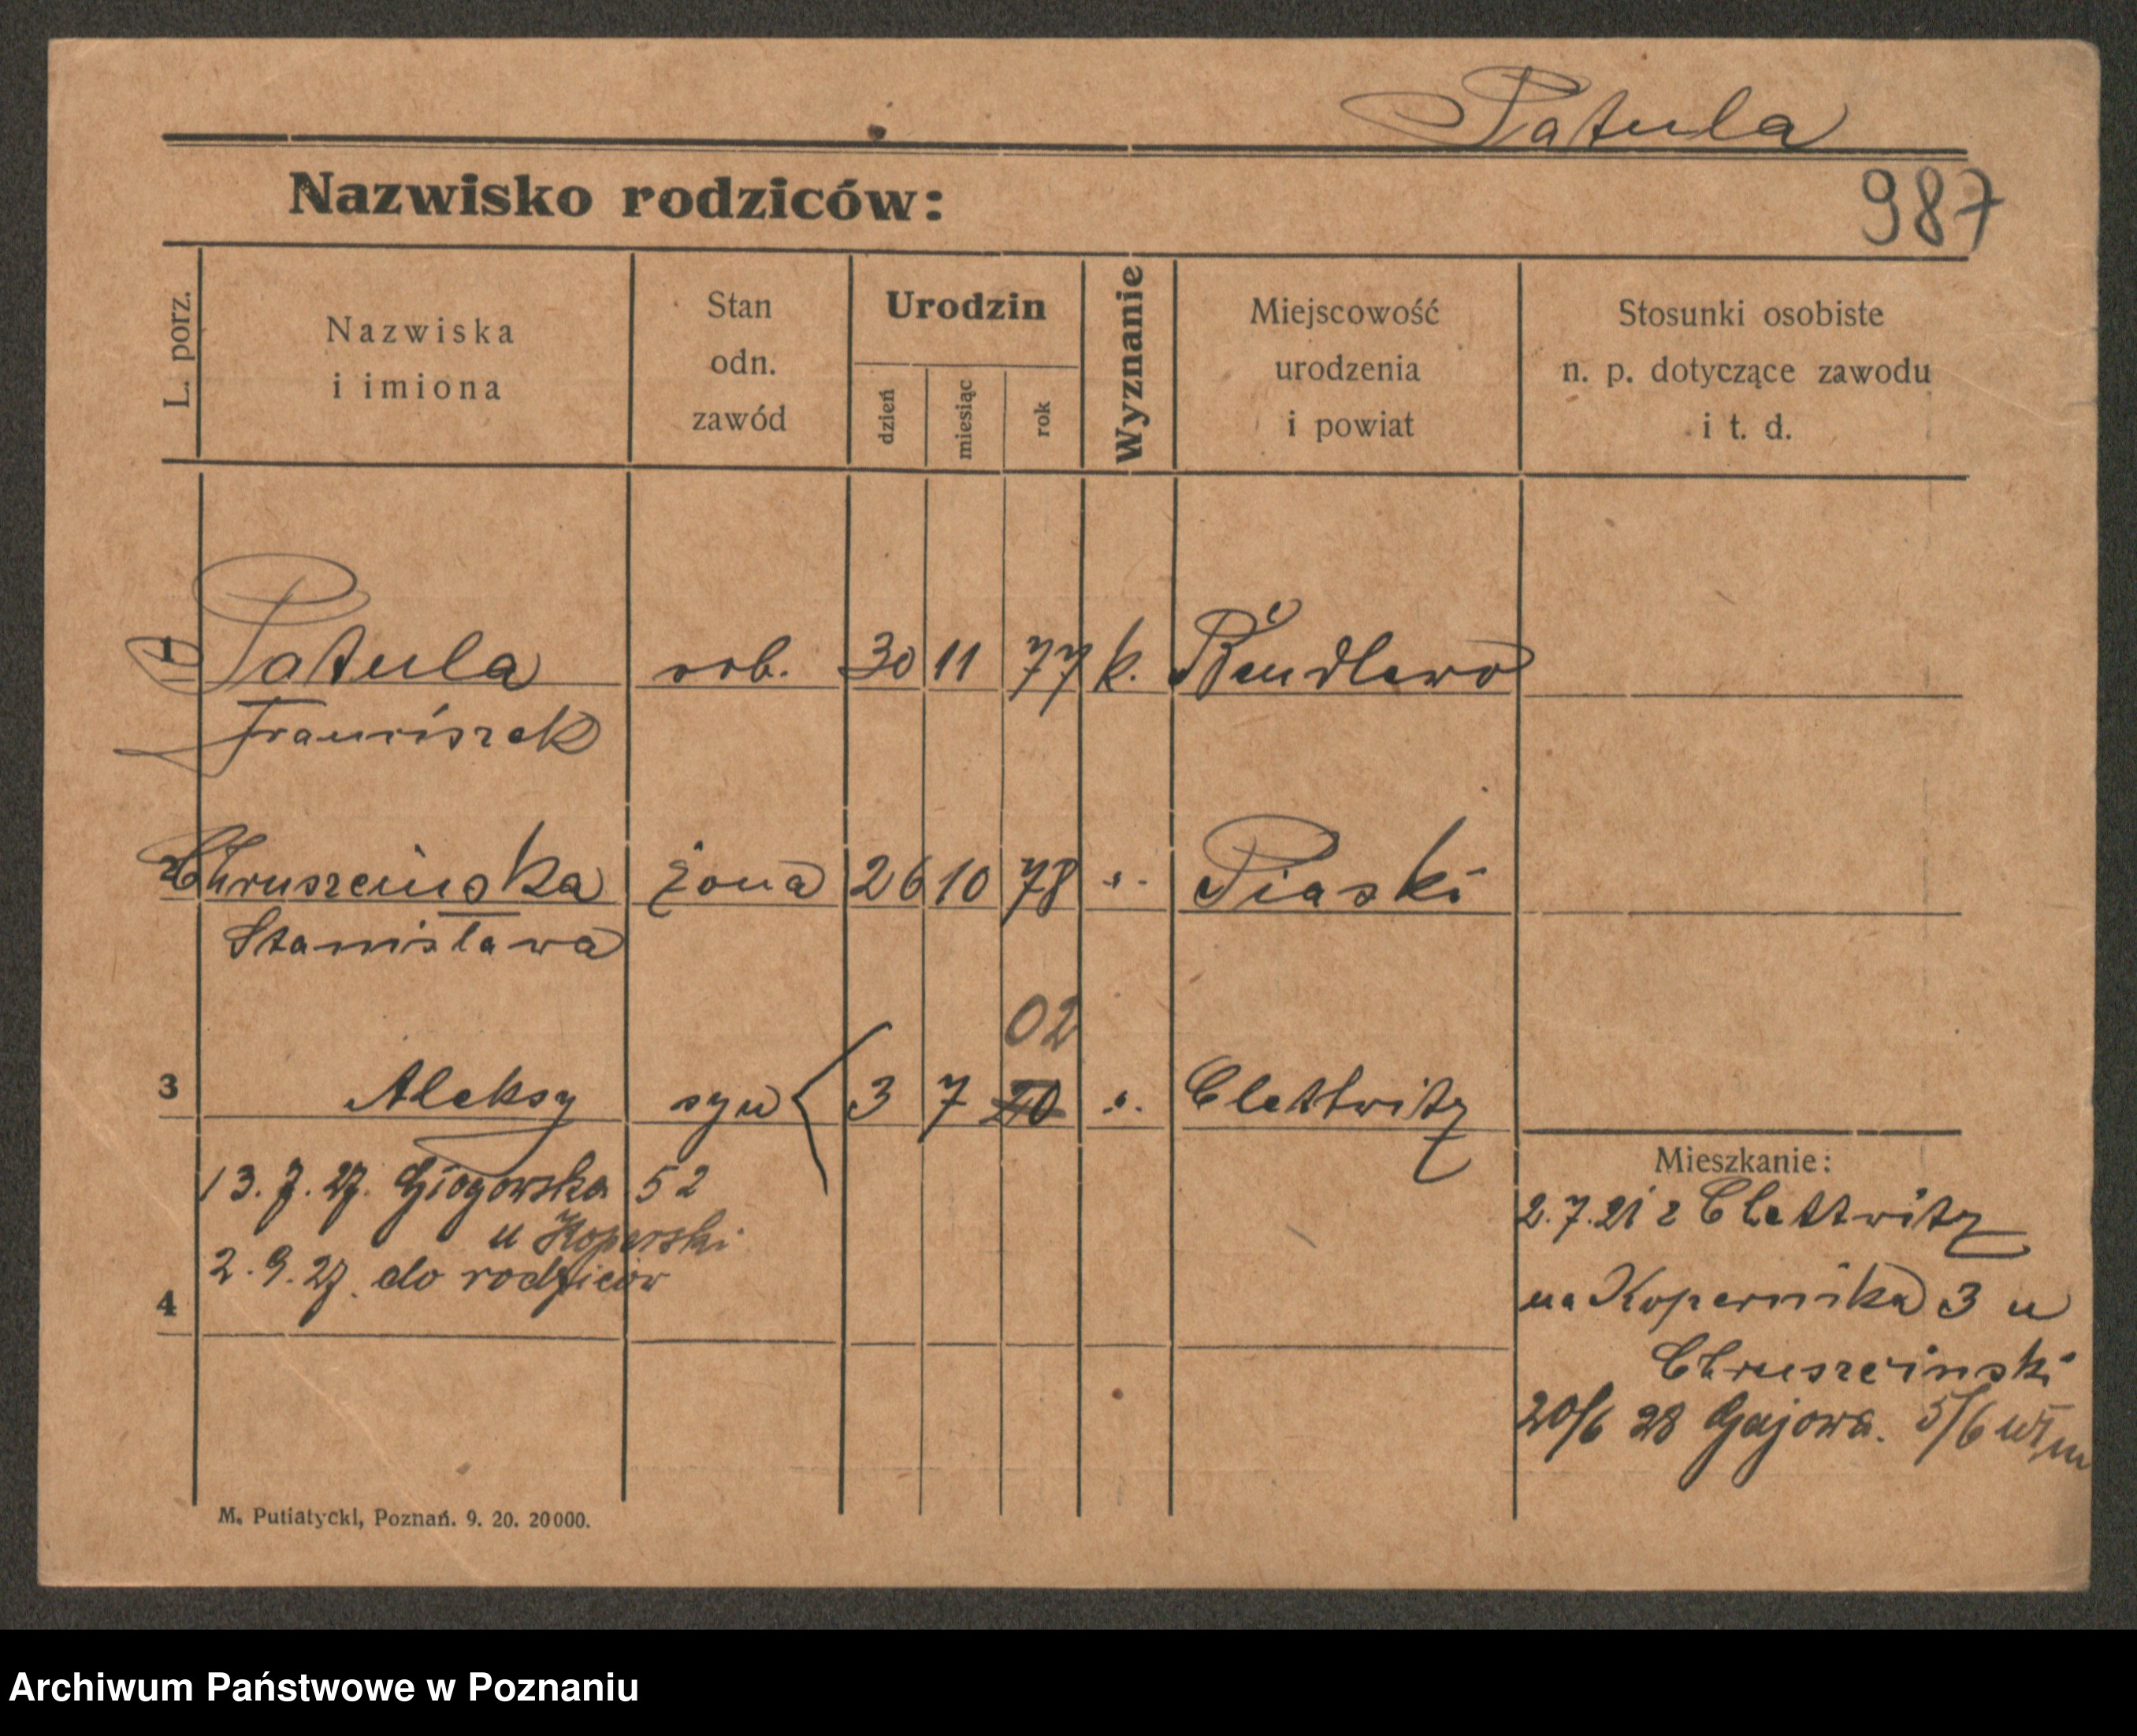 Patula
Nazwisko rodziców:
987
L. porz.
Nazwiska
i imiona
Stan
odn.
zawód
Urodzin
dzień
miesiąc
rok
Wyznanie
Miejscowość
urodzenia
i powiat
Stosunki osobiste
n. p. dotyczące zawodu
i t. d.
1 Patula rob. 30 11 77 k. Bendlewo
Franciszek
2 Chruszcinska żona 26 10 78 " Piaski
Stanisława
02
3 Aleksy syn 3 7 20 " Clettwitz
Mieszkanie:
13. 7. 27. Głogowska 52
u Koperski
2. 9. 27. do rodziców
4
2. 7. 21 z Clettwitz
na Kopernika 3 u
Chruszcinski
20/6 28 Gajowa. 5/6
M. Putiatycki, Poznań. 9. 20. 20000.
Archiwum Państwowe w Poznaniu